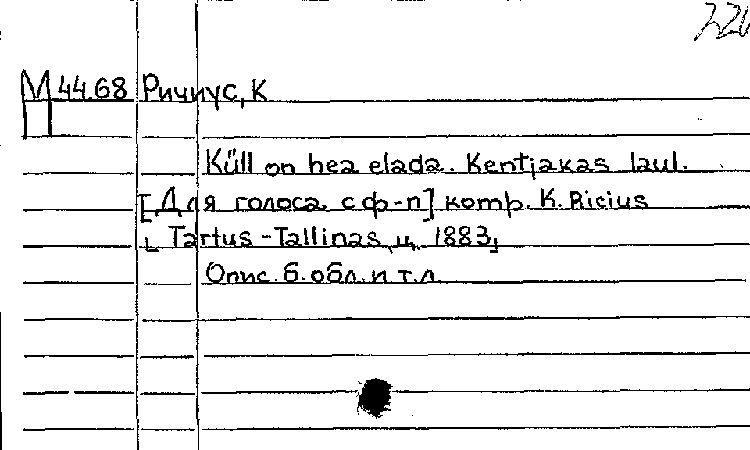 226
М 44.68 Ричиус, К
П
Küll on hea elada. Kentjakas laul.
[Для голоса с ф-п] комр. K. Ricius
Tartus-Tallinas, ц. 1883,
Опис. б. обл. и т.л